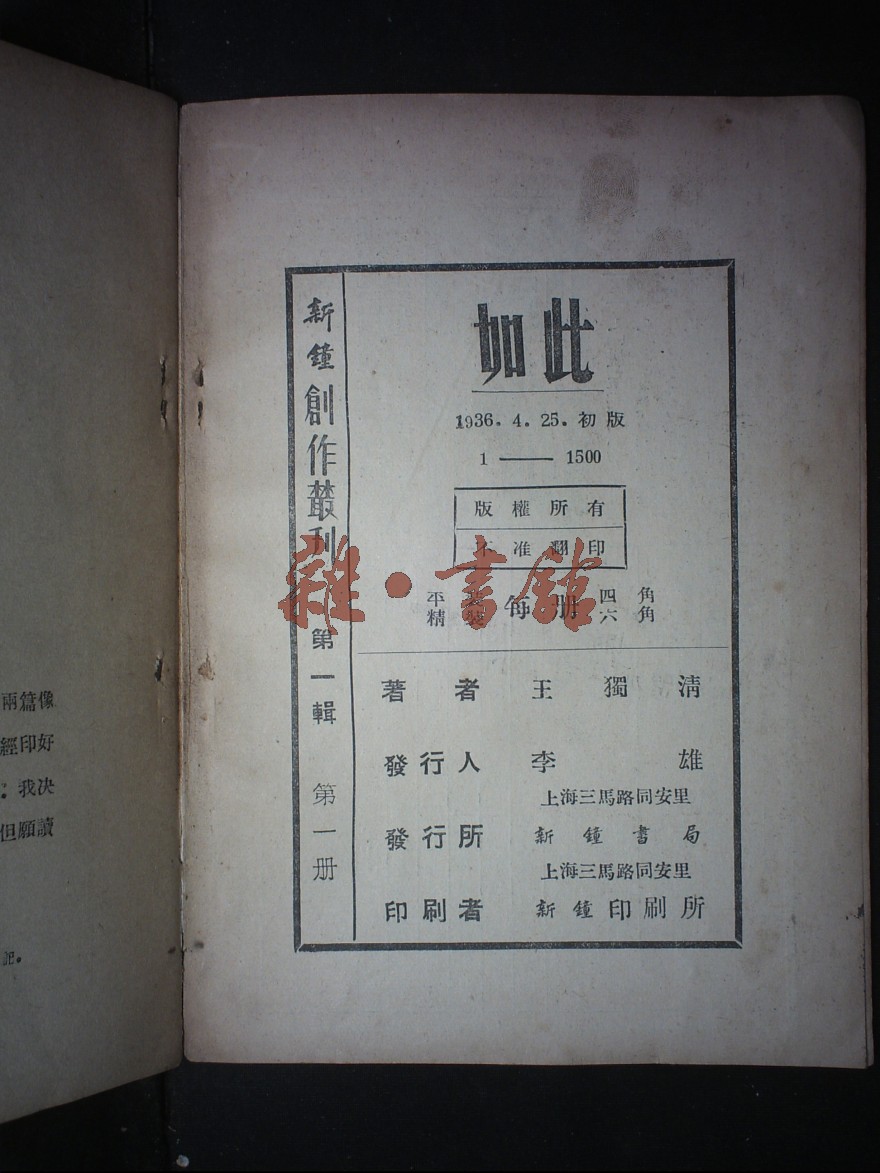 兩篇像
經印好
我決
但願讀
記。
新鐘創作叢刊 第一輯 第一册
如此
1936. 4. 25. 初版
1 —— 1500
版權所有
不准翻印
平裝 每册 四角
精裝 六角
著者 王獨清
發行人 李雄
上海三馬路同安里
發行所 新鐘書局
上海三馬路同安里
印刷者 新鐘印刷所
雜·書館